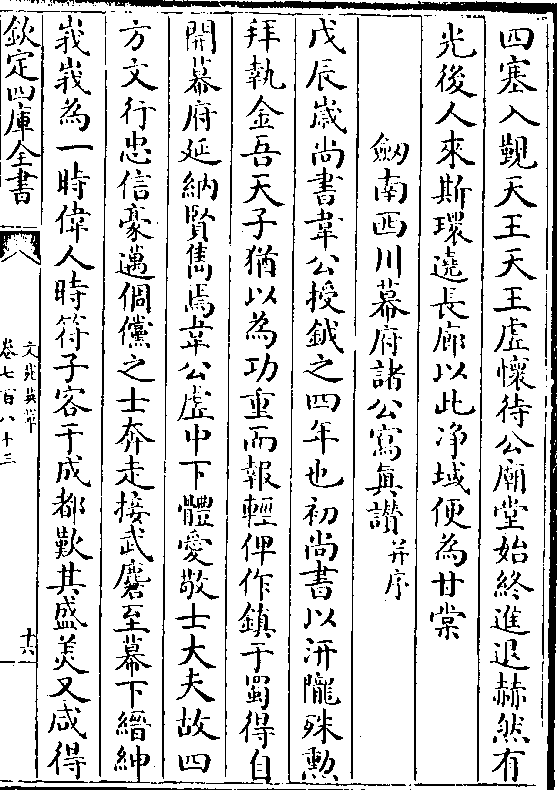 四塞入觐天王天王虚懷待公廟堂始終進退赫然有
光後人來斯環遶長廊以此净域便為甘棠
劒南西川幕府諸公寫真讃并序
戊辰嵗尚書韋公授鉞之四年也初尚書以汧隴殊勲
拜執金吾天子猶以為功重而報輕俾作鎮于蜀得自
開幕府延納賢雋焉韋公虚中下體愛敬士大夫故四
方文行忠信豪邁倜儻之士奔走接武麏至幕下縉紳
峩峩為一時偉人時符子客于成都歎其盛美又咸得
欽定四庫全書
文苑英華
卷七百八十三
十六